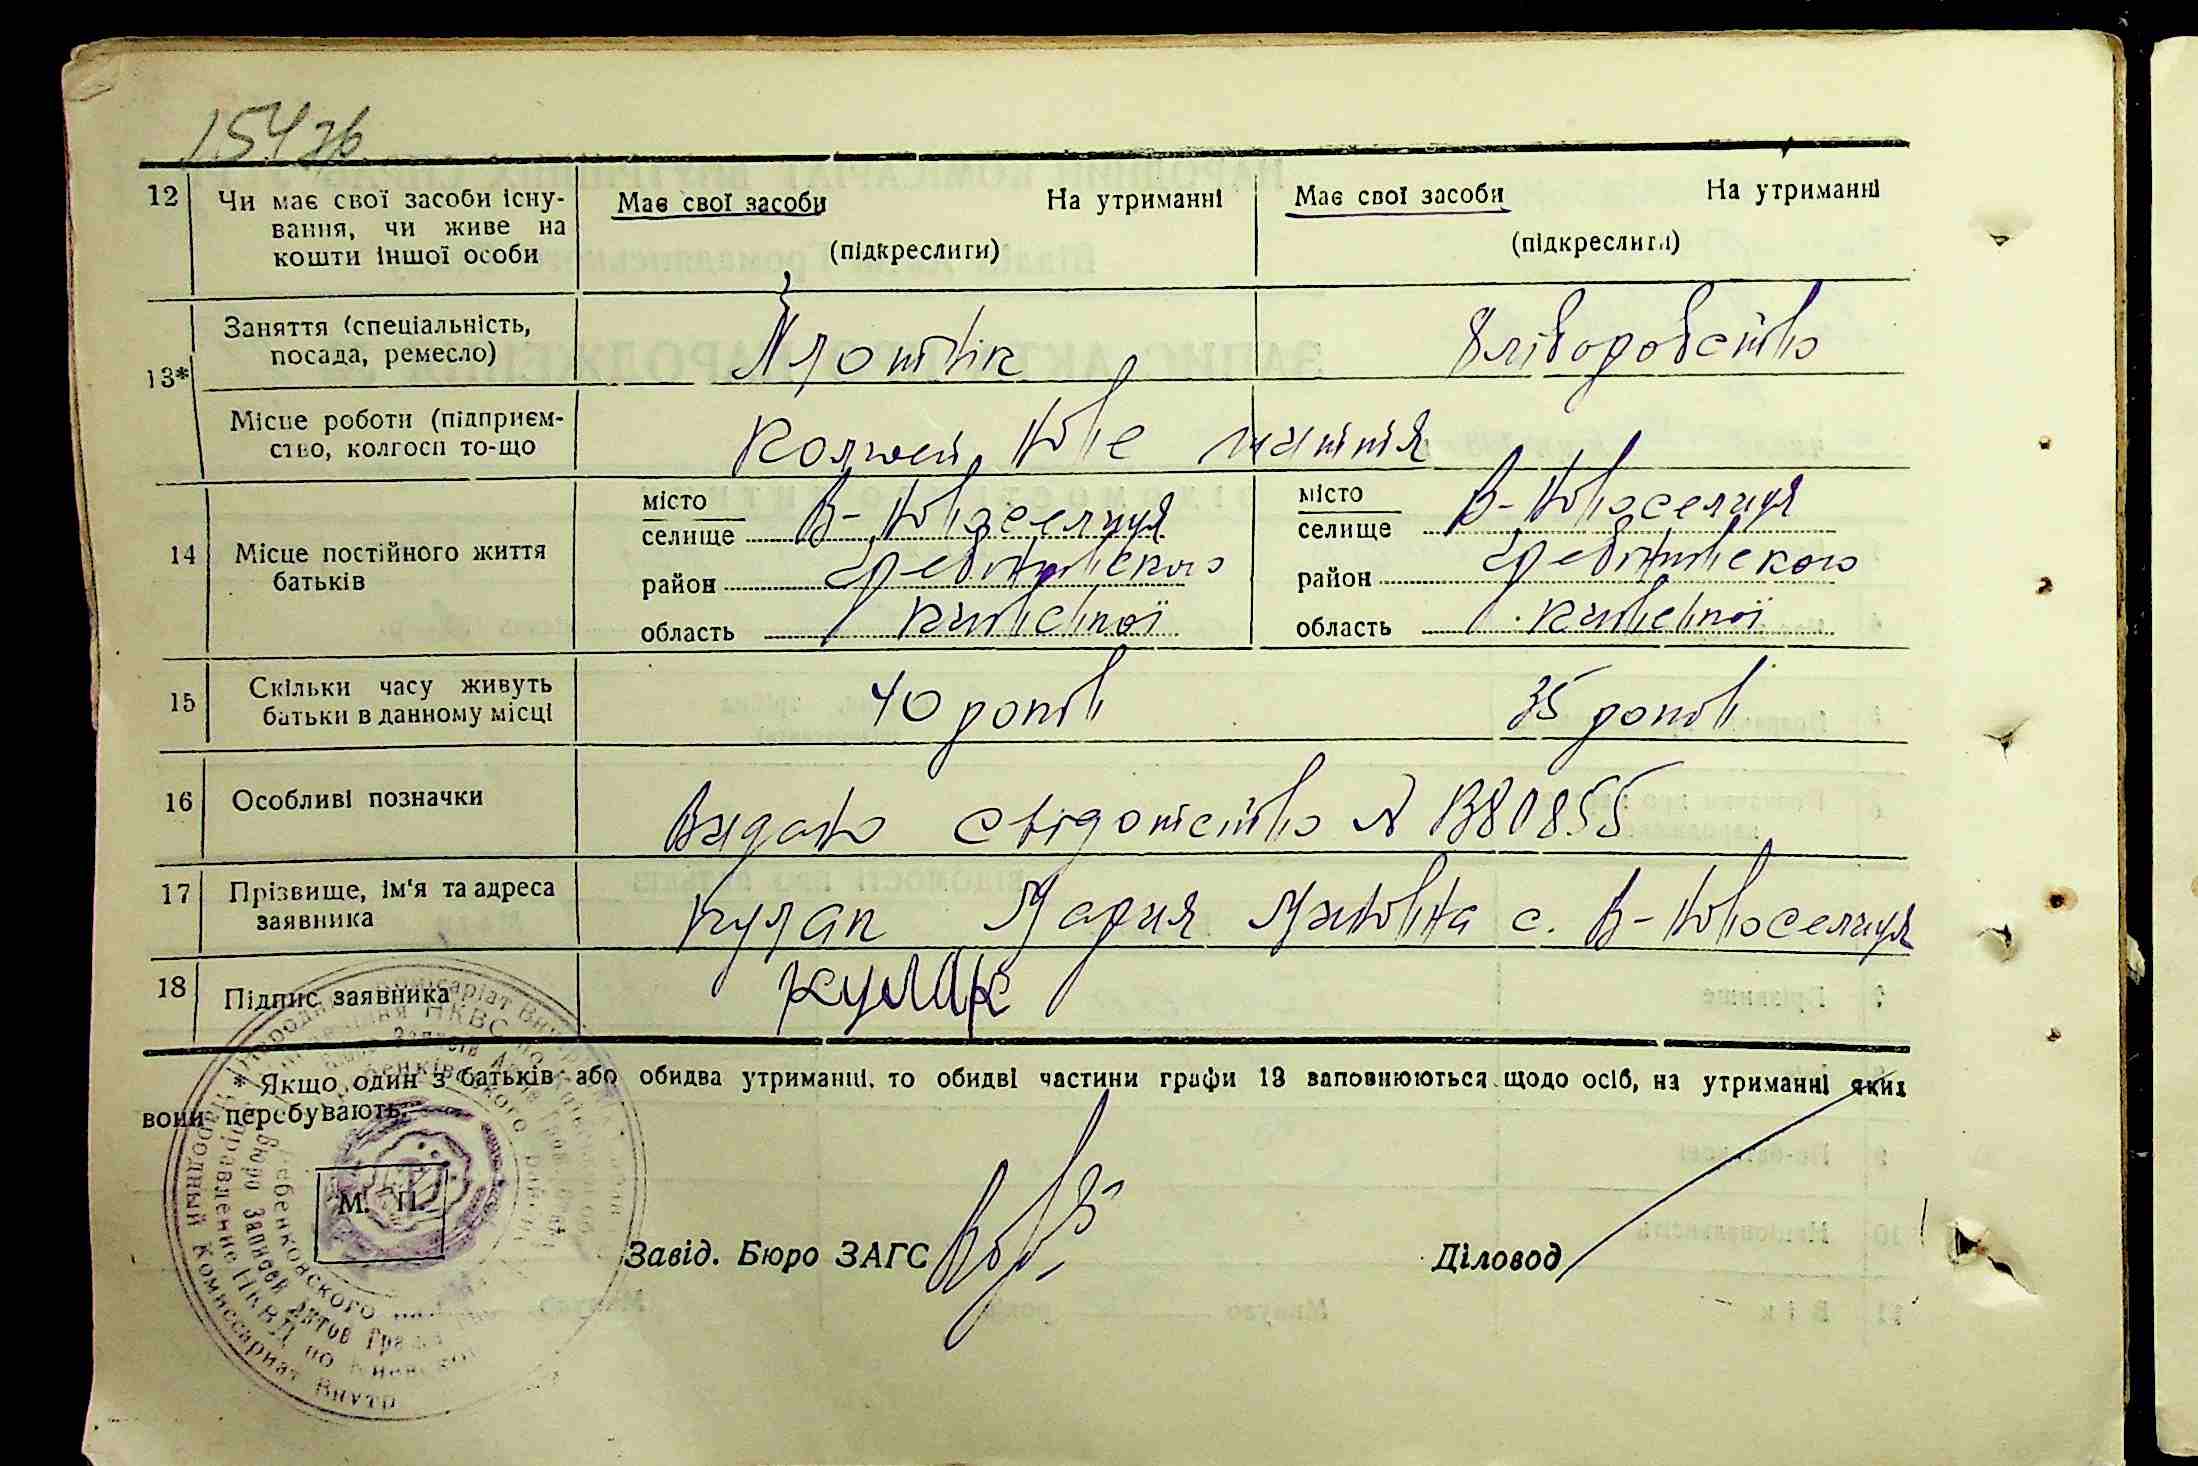 154 зв
12 Чи має свої засоби існу-
вання, чи живе на
кошти іншої особи
Має свої засоби На утриманні
(підкреслити)
Має свої засоби На утриманні
(підкреслити)
13* Заняття (спеціальність,
посада, ремесло)
Плотнік
Хліборобство
Місце роботи (підприєм-
ство, колгосп то-що
Колгосп Нове життя
14 Місце постійного життя
батьків
місто
селище В-Новоселиця
район Гребінківского
область Київської
місто
селище В-Новоселиця
район Гребінківского
область Київської
15 Скільки часу живуть
батьки в данному місці
40 років
35 років
16 Особливі позначки
Видано свідотство № 180855
17 Прізвище, ім'я та адреса
заявника
Кулак Мария с. В-Новоселиця
18 Підпис заявника
Кулак
* Якщо один з батьків або обидва утриманці, то обидві частини графи 13 заповнюються щодо осіб, на утриманні яких
вони перебувають.
М. П.
Завід. Бюро ЗАГС
Діловод